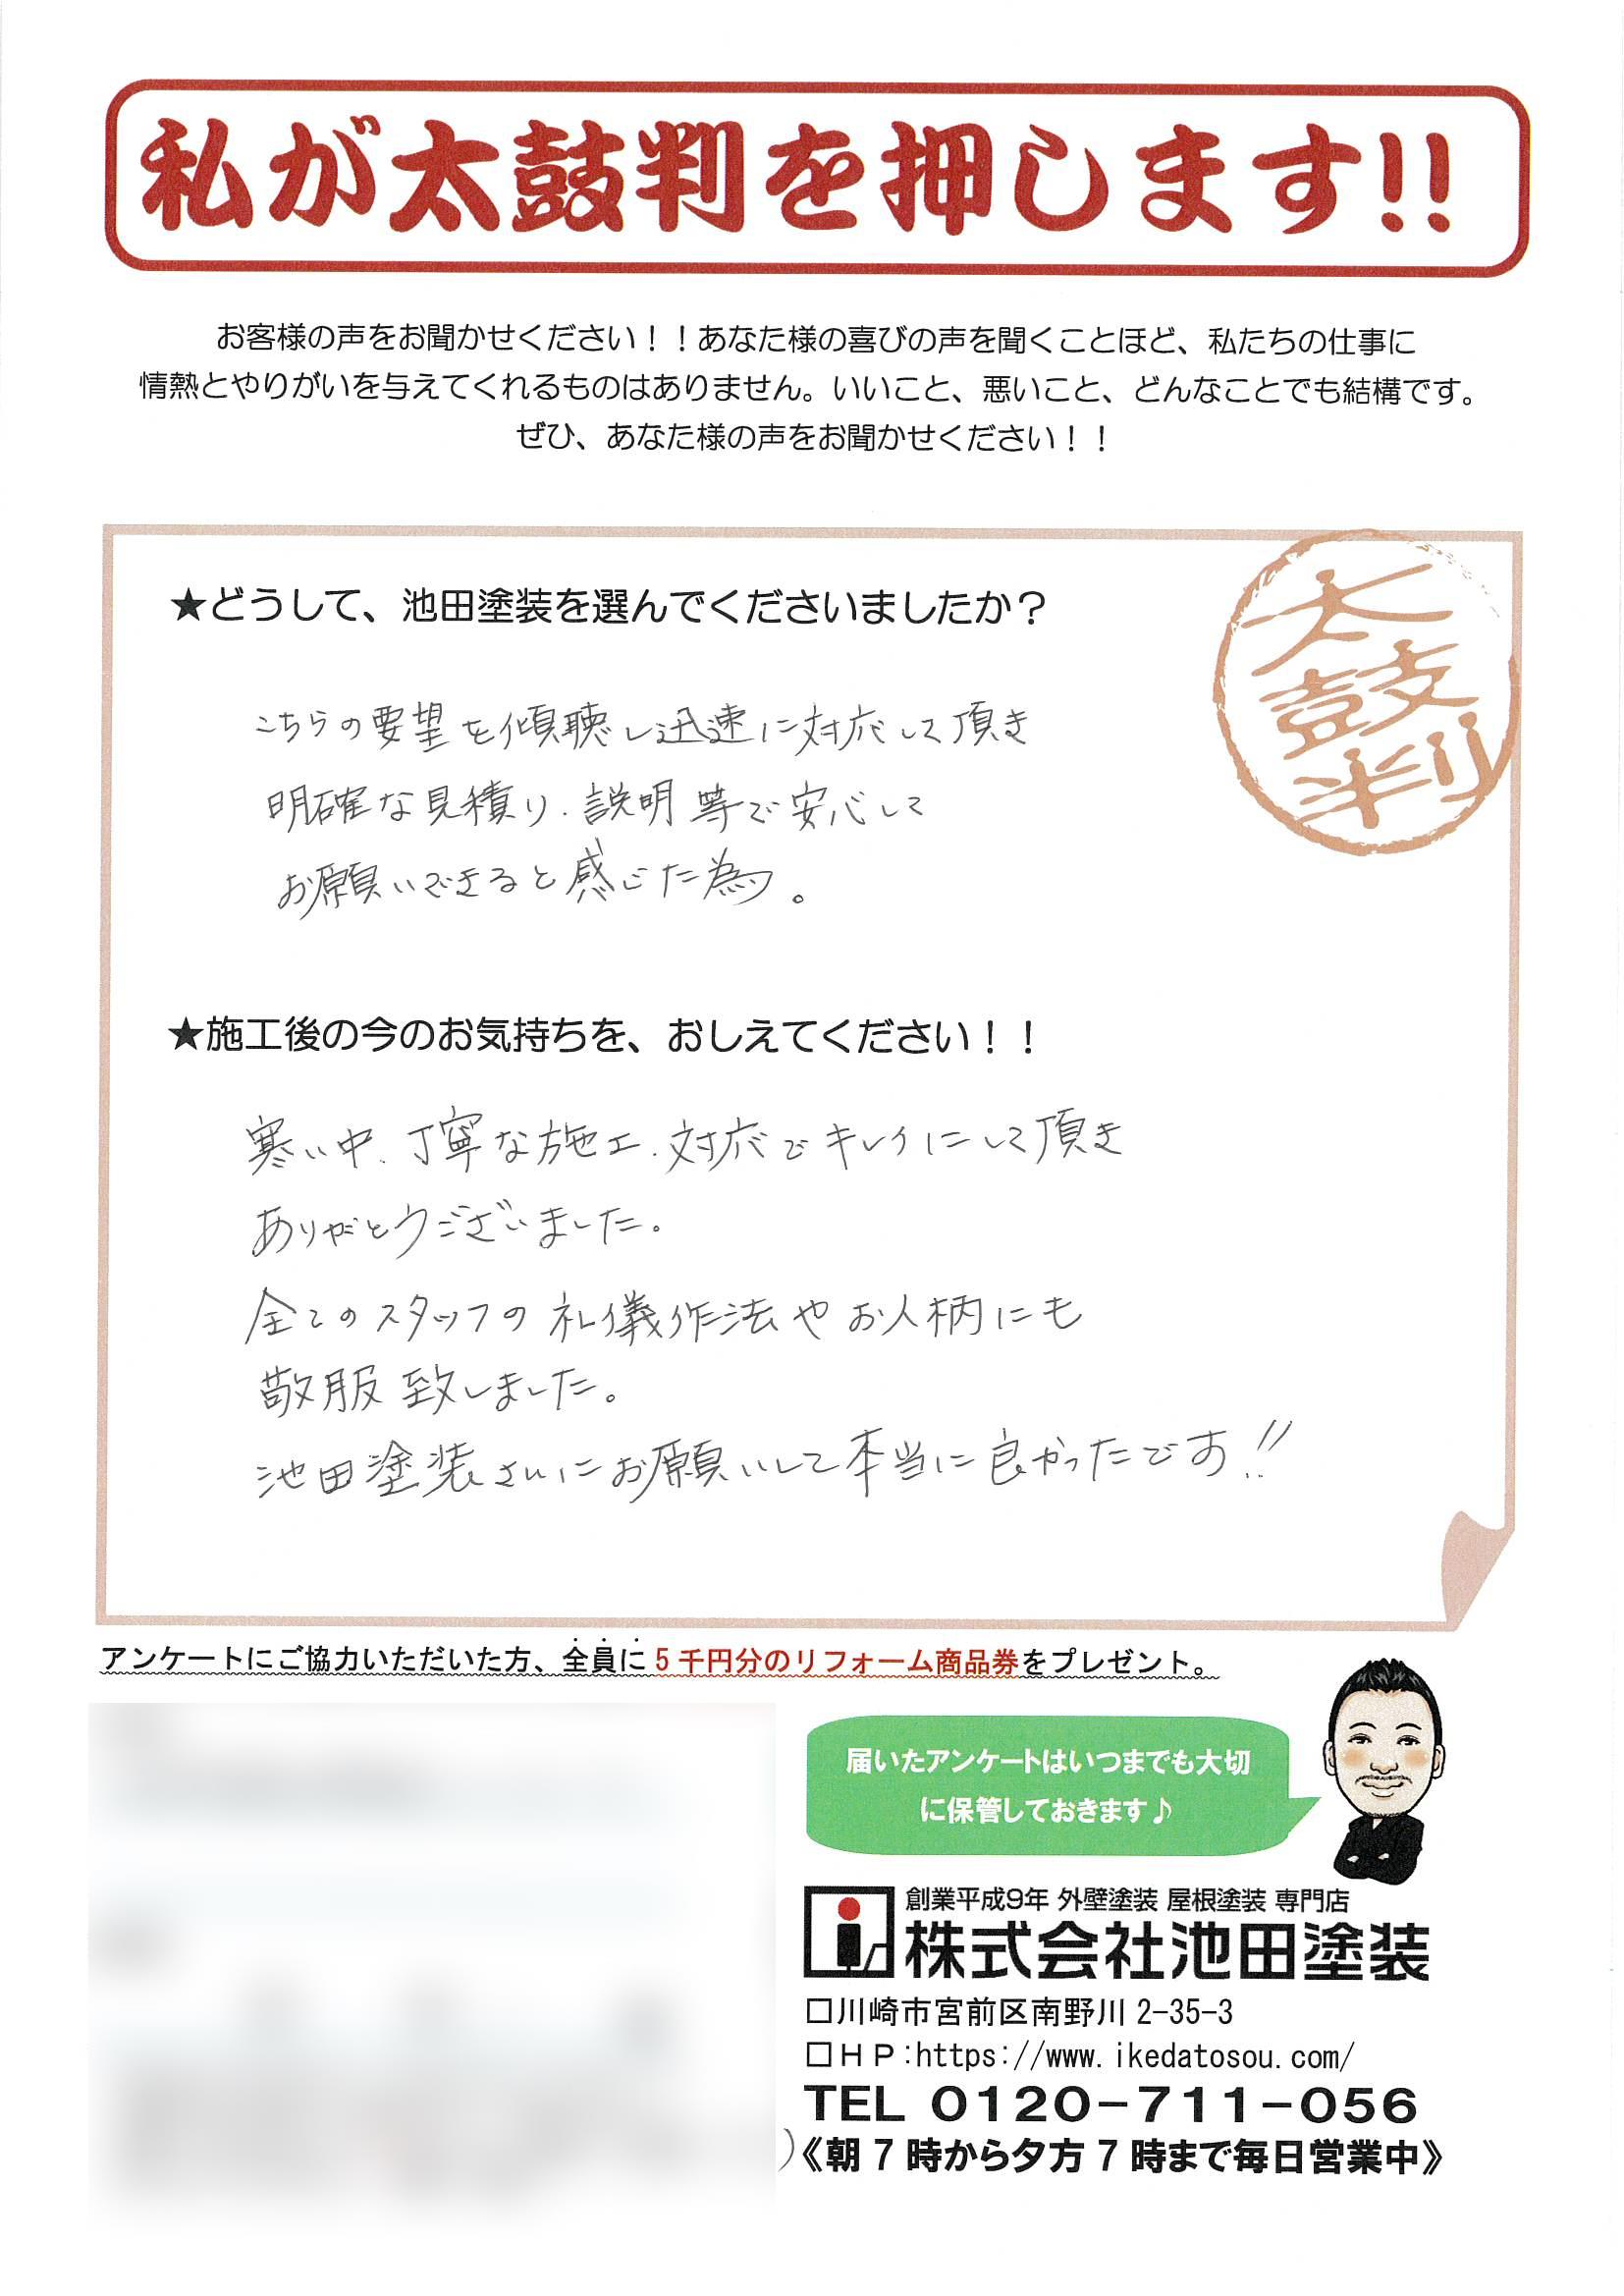 私が太鼓判を押します!!
お客様の声をお聞かせください！！あなた様の喜びの声を聞くことほど、私たちの仕事に
情熱とやりがいを与えてくれるものはありません。いいこと、悪いこと、どんなことでも結構です。
ぜひ、あなた様の声をお聞かせください！！
太鼓判
★どうして、池田塗装を選んでくださいましたか？
こちらの要望を傾聴し迅速に対応して頂き
明確な見積り、説明等で安心して
お願いできると感じた為。
★施工後の今のお気持ちを、おしえてください！！
寒い中、丁寧な施工、対応でキレイにして頂き
ありがとうございました。
全てのスタッフの礼儀作法やお人柄にも
敬服致しました。
池田塗装さんにお願いして本当に良かったです!!
アンケートにご協力いただいた方、全員に5千円分のリフォーム商品券をプレゼント。
届いたアンケートはいつまでも大切
に保管しておきます♪
創業平成9年 外壁塗装 屋根塗装 専門店
株式会社池田塗装
□川崎市宮前区南野川2-35-3
□ＨＰ:https://www.ikedatosou.com/
TEL 0120-711-056
)《朝7時から夕方7時まで毎日営業中》